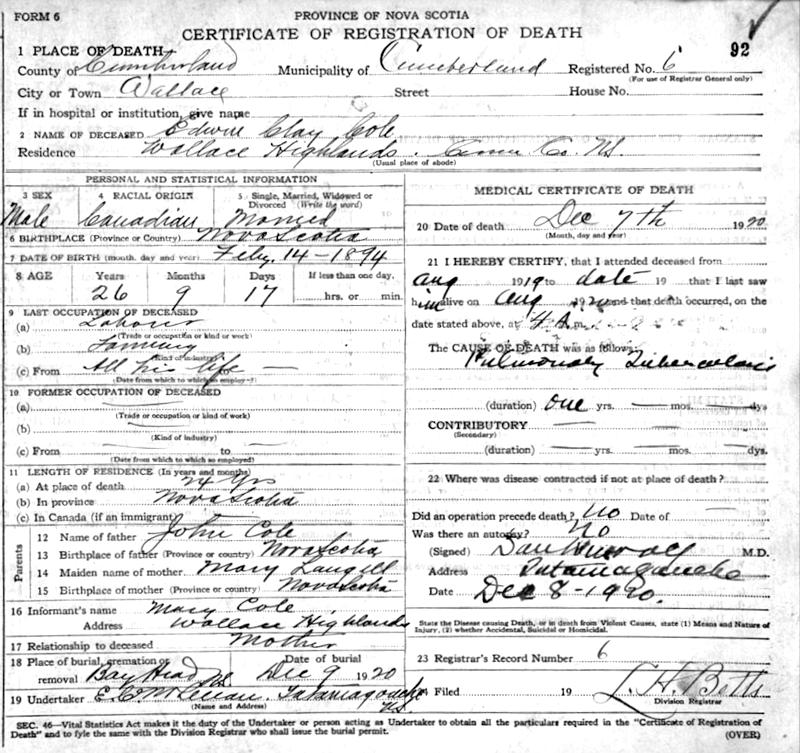 FORM 6
PROVINCE OF NOVA SCOTIA
CERTIFICATE OF REGISTRATION OF DEATH
92
1 PLACE OF DEATH—
County of Cumberland Municipality of Cumberland Registered No. 6
(For use of Registrar General only)
City or Town Wallace Street House No.
If in hospital or institution, give name
2 NAME OF DECEASED Edwin Clay Cole
Residence Wallace Highlands. Cum. Co. N.S.
(Usual place of abode)
PERSONAL AND STATISTICAL INFORMATION
3 SEX 4 RACIAL ORIGIN 5 Single, Married, Widowed or Divorced (Write the word)
Male Canadian Married
6 BIRTHPLACE (Province or Country) Nova Scotia
7 DATE OF BIRTH (month, day and year) Feby. 14-1894
8 AGE Years Months Days If less than one day,
26 9 17 hrs. or min.
9 LAST OCCUPATION OF DECEASED
(a) Labour
(Trade or occupation or kind or work)
(b) Farming
(Kind of industry)
(c) From All his life —
(Date from which to which so employ-?)
10 FORMER OCCUPATION OF DECEASED
(a)
(Trade or occupation or kind of work)
(b)
(Kind of industry)
(c) From to
(Date from which to which so employed)
11 LENGTH OF RESIDENCE (In years and months)
(a) At place of death 24 yrs
(b) In province Nova Scotia
(c) In Canada (if an immigrant)
Parents
12 Name of father John Cole
13 Birthplace of father (Province or country) Nova Scotia
14 Maiden name of mother Mary Langill
15 Birthplace of mother (Province or country) Nova Scotia
16 Informant's name Mary Cole
Address Wallace Highlands
17 Relationship to deceased Mother
18 Place of burial, cremation or removal Bay Head N.S. Date of burial Dec 9 1920
19 Undertaker Tatamagouche N.S.
(Name and Address)
MEDICAL CERTIFICATE OF DEATH
20 Date of death Dec 7th 1920
(Month, day and year)
21 I HEREBY CERTIFY, that I attended deceased from
Aug 1919 to date 19 that I last saw
him alive on Aug 1920 and that death occurred, on the
date stated above, at 4 A. m.
The CAUSE OF DEATH was as follows:
Pulmonary Tuberculosis
(duration) one yrs. — mos. — dys
CONTRIBUTORY
(Secondary)
(duration) — yrs. — mos. — dys.
22 Where was disease contracted if not at place of death?
Did an operation precede death? No Date of
Was there an autopsy? No
(Signed) M.D.
Address Tatamagouche
Date Dec 8-1920.
State the Disease causing Death, or in death from Violent Causes, state (1) Means and Nature of Injury, (2) whether Accidental, Suicidal or Homicidal.
23 Registrar's Record Number 6
24 Filed 19 L. H. Betts
Division Registrar
SEC. 46—Vital Statistics Act makes it the duty of the Undertaker or person acting as Undertaker to obtain all the particulars required in the "Certificate of Registration of
Death" and to fyle the same with the Division Registrar who shall issue the burial permit. (OVER)